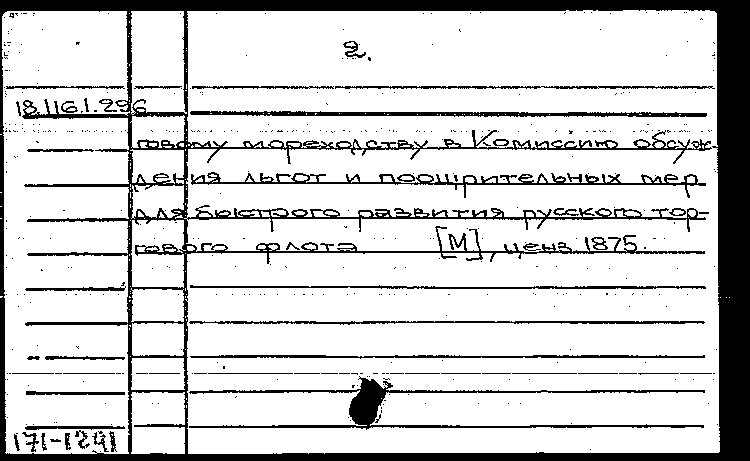 2.
18.116.1.296
говому мореходству в Комиссию обсуж-
дения льгот и поощрительных мер
для быстрого развития русского тор-
гового флота. [М], ценз 1875.
171-1291